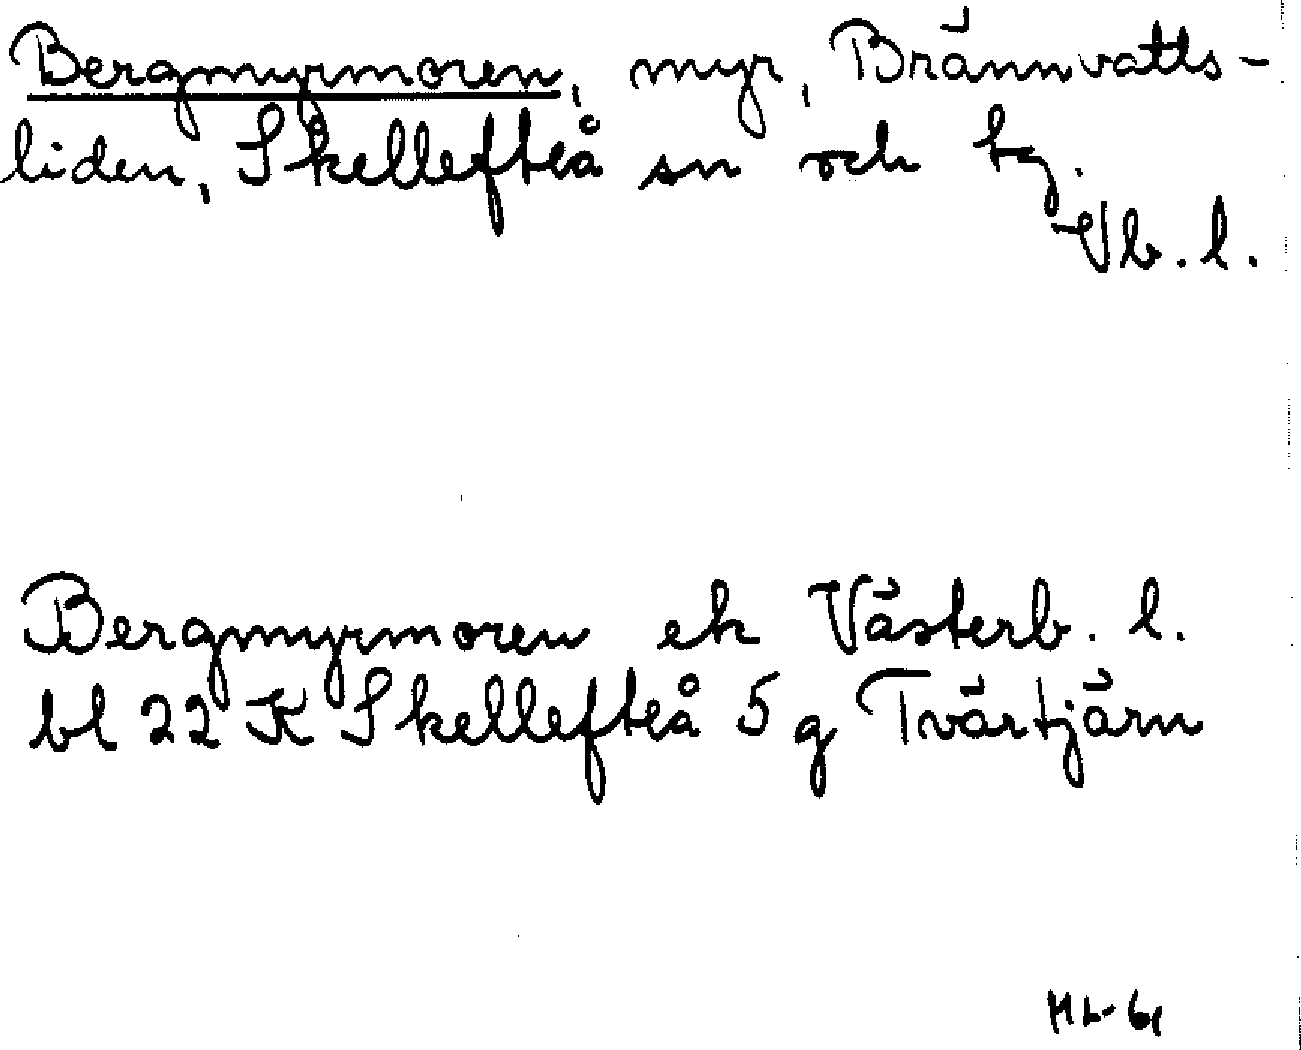 Bergmyrmoren, myr, Brännvatts-
liden, Skellefteå sn och tg.
Vb. l.
Bergmyrmoren ek Västerb. l.
bl 22 K Skellefteå 5 g Tvärtjärn
HL-61